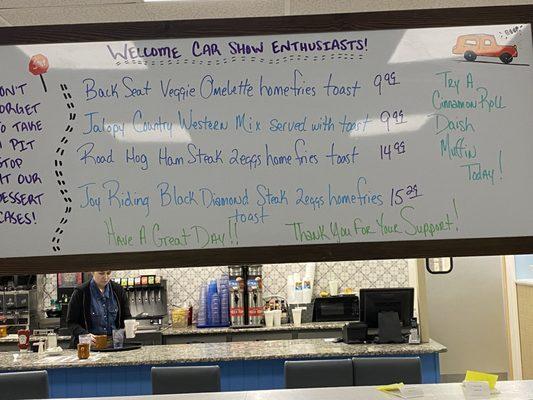 Welcome Car Show Enthusiasts!
Don't
forget
to take
a pit
stop
at our
dessert
cases!
Back Seat Veggie Omelette homefries toast 9.99
Jalopy Country Western Mix served with toast 9.99
Road Hog Ham Steak 2eggs homefries toast 14.99
Joy Riding Black Diamond Steak 2eggs homefries 15.29
toast
Have A Great Day!!
Thank You For Your Support!
Try A
Cinnamon Roll
Daish
Muffin
Today!